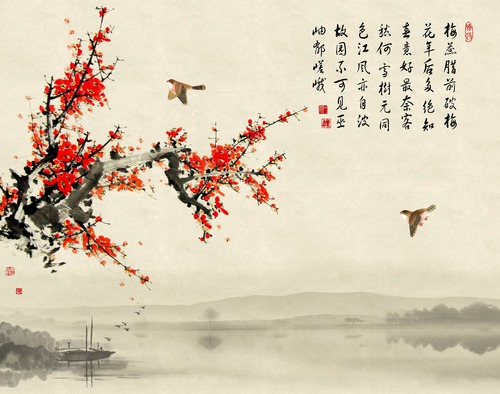 梅蕊腊前破梅
花年后多绝知
春意好最奈客
愁何雪樹元同
色江风亦自波
故園不可見巫
岫郁嵯峨